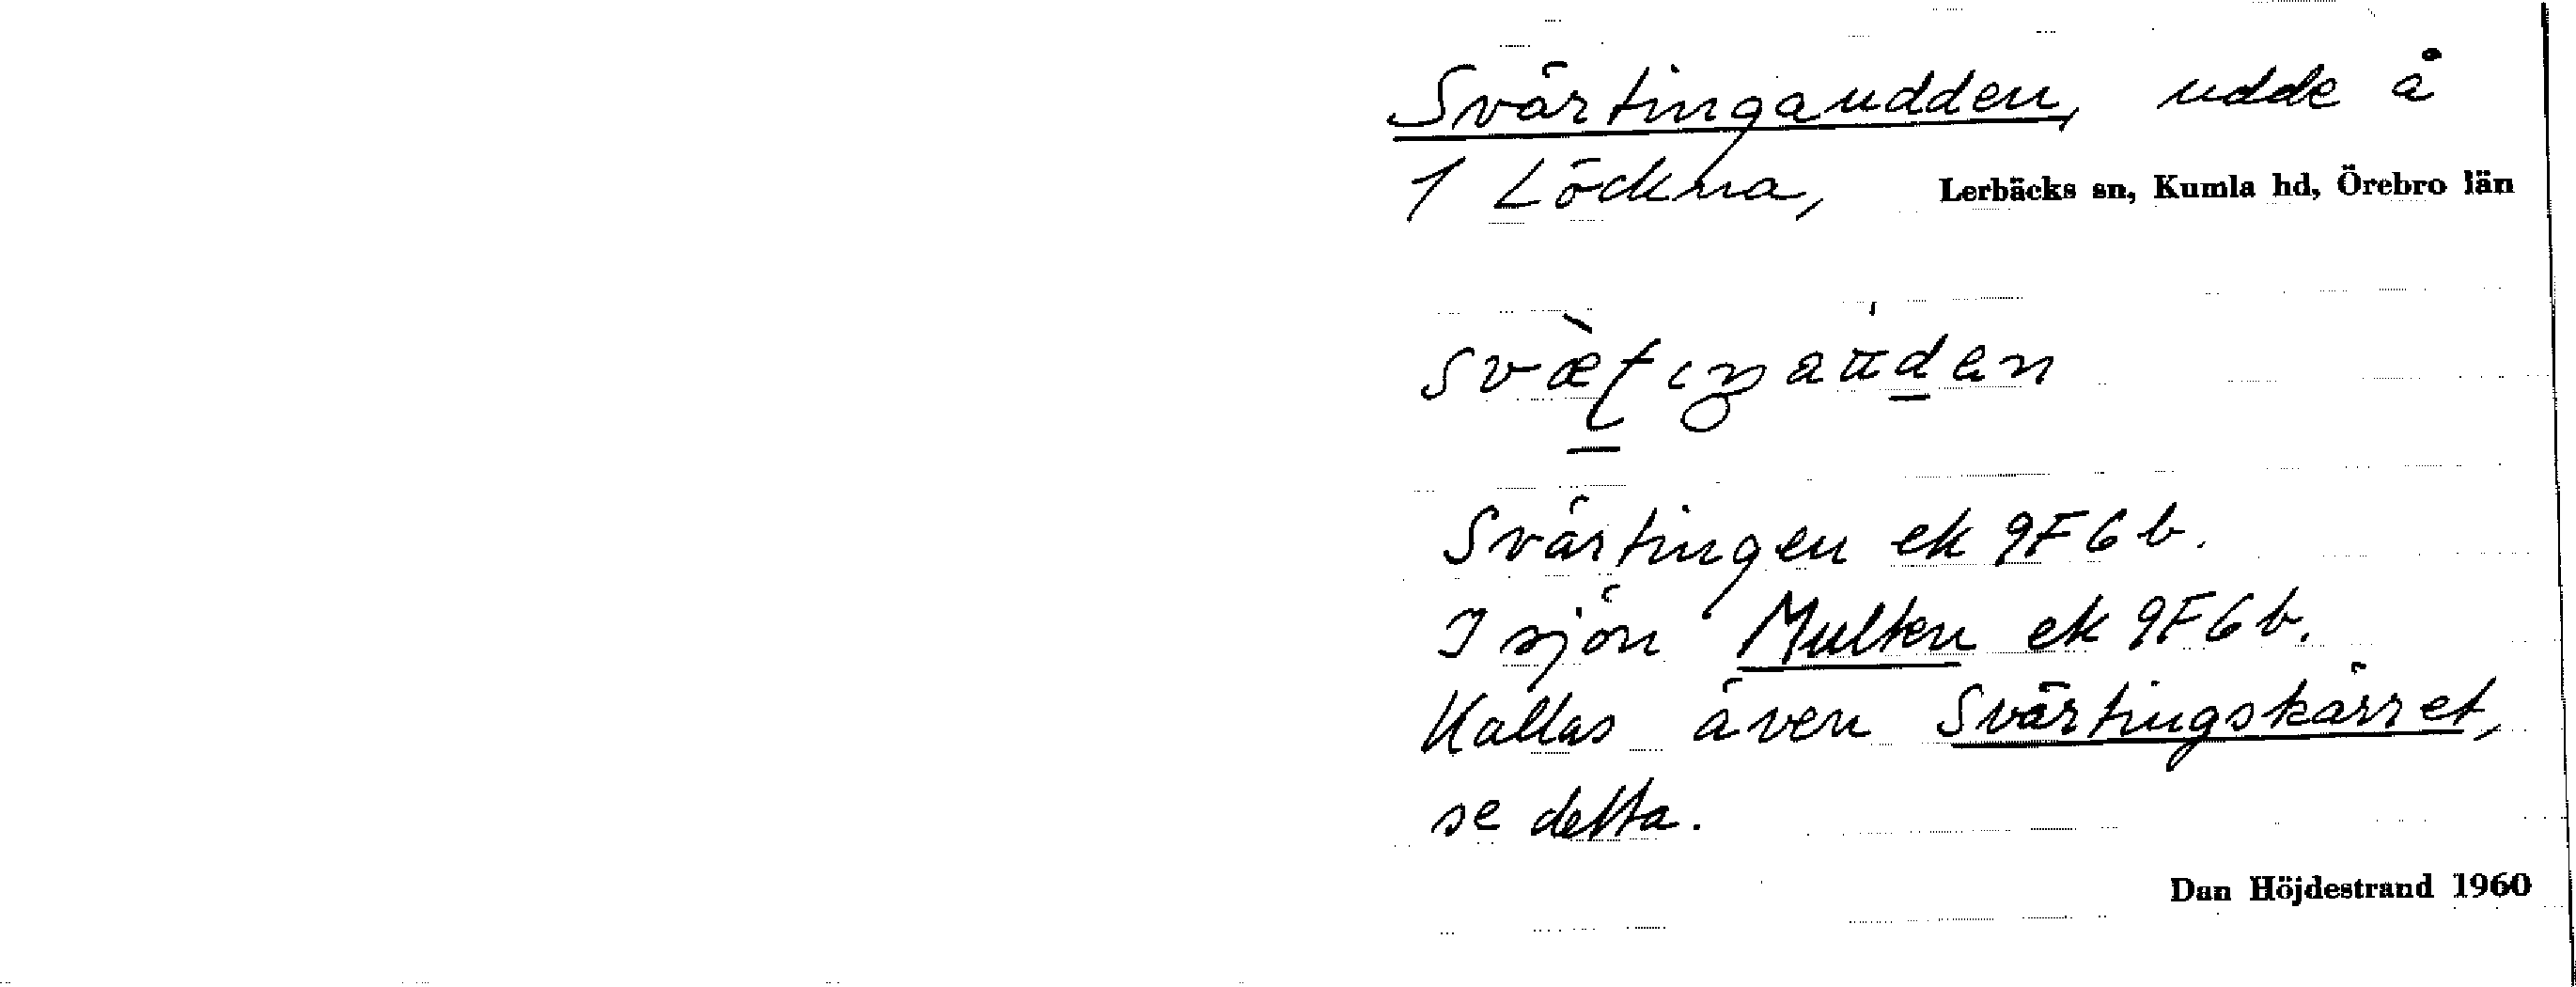 Svärtingaudden, udde å
1 Löckna, Lerbäcks sn, Kumla hd, Örebro län
Svärtingen ek 9F6b.
I sjön Multen ek 9F6b.
Kallas även Svärtingskärret,
se detta.
Dan Höjdestrand 1960